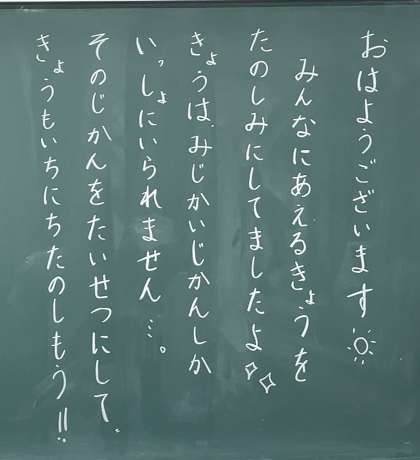 おはようございます
みんなにあえるきょうを
たのしみにしてましたよ
きょうは、みじかいじかんしか
いっしょにいられません…。
そのじかんをたいせつにして、
きょうもいちにちたのしもう!!